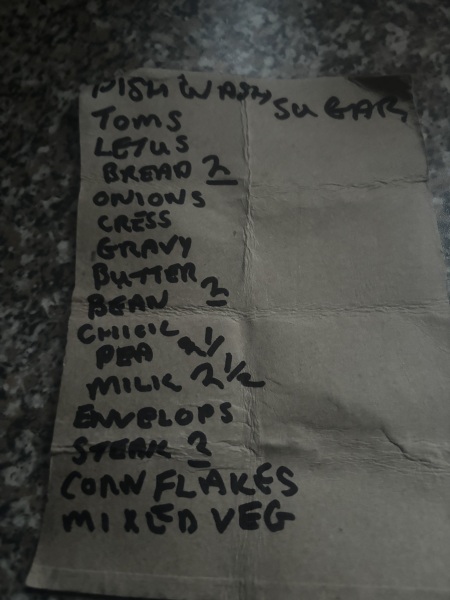 DISH WASH
SUGAR
TOMS
LETUS
BREAD 2
ONIONS
CRESS
GRAVY
BUTTER
BEAN 2
CHICK
PEA
MILK 2 1/2
ENVELOPS
STEAK 2
CORN FLAKES
MIXED VEG